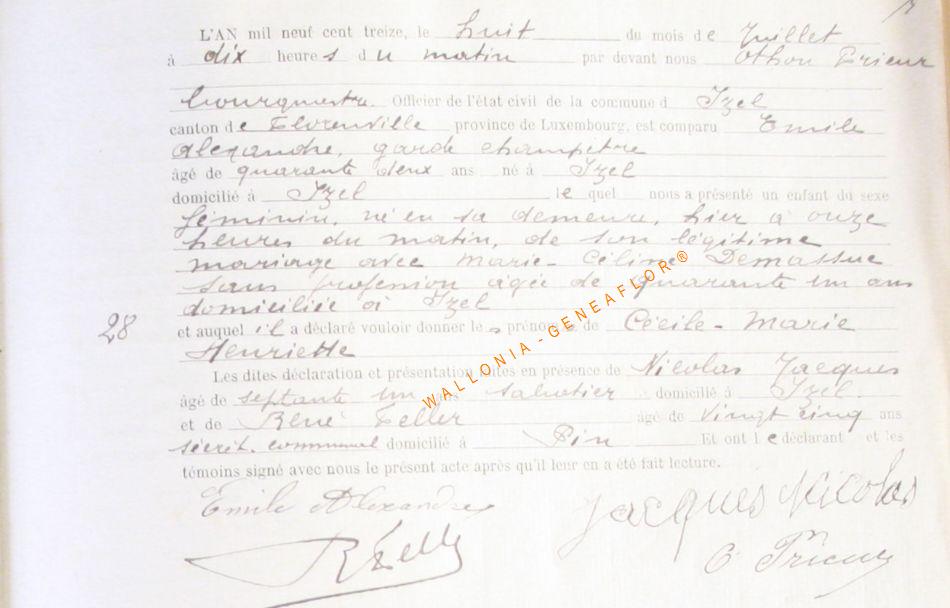 L'AN mil neuf cent treize, le huit du mois de Juillet
à dix heures du matin par devant nous Othon Prieur
bourgmestre. Officier de l'état civil de la commune d Izel
canton de Florenville province de Luxembourg, est comparu Emile
Alexandre, garde champêtre
âgé de quarante deux ans né à Izel
domicilié à Izel le quel nous a présenté un enfant du sexe
féminin, né en sa demeure, hier à onze
heures du matin, de son légitime
mariage avec Marie-Céline Demassue
sans profession âgée de quarante un ans
domiciliée à Izel
28
et auquel il a déclaré vouloir donner les prénoms de Cécile-Marie
Henriette
Les dites déclaration et présentation faites en présence de Nicolas Jacques
âgé de septante un ans sabotier domicilié à Izel
et de René Feller âgé de vingt cinq ans
secrét. communal domicilié à Pin Et ont le déclarant et les
témoins signé avec nous le présent acte après qu'il leur en a été fait lecture.
Emile Alexandre
Jacques Nicolas
RFeller
O Prieur
WALLONIA-GENEAFLOR®